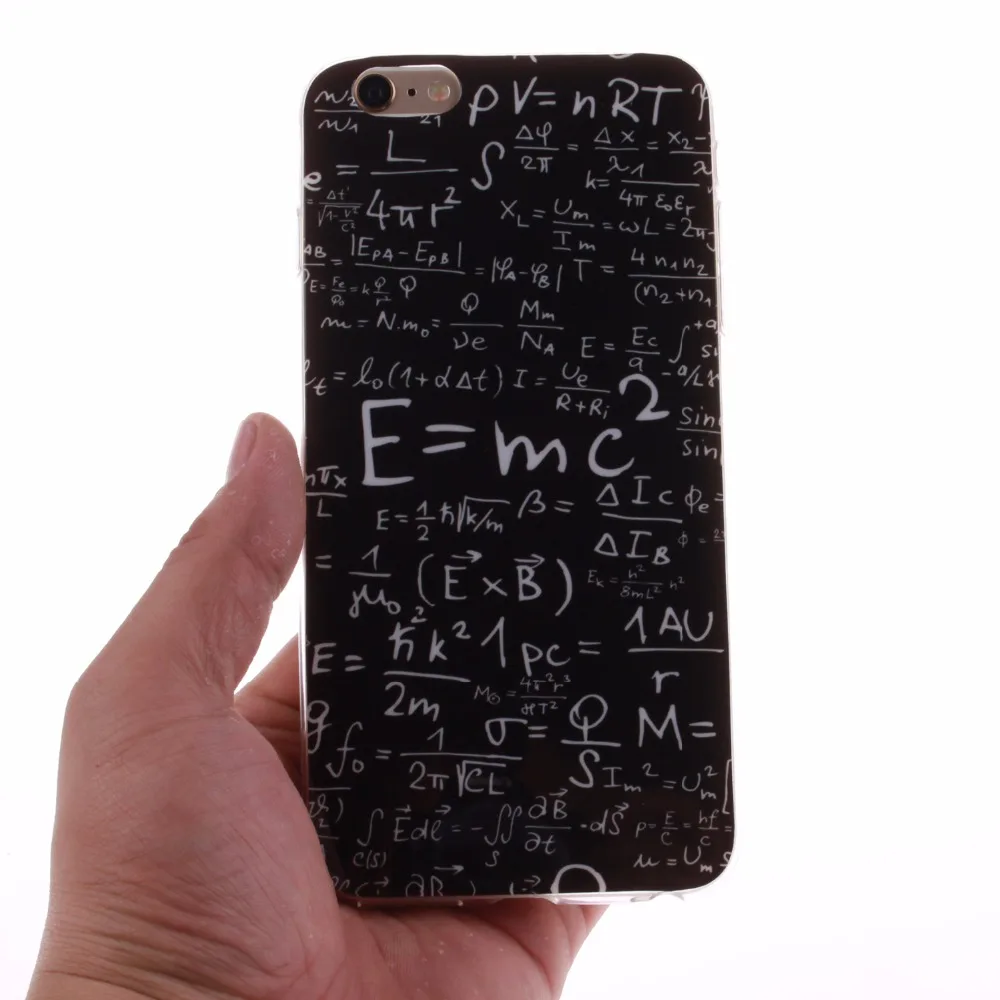 pV = nRT
L / 4πr²
Δφ / 2π = Δx / λ = x₂-
k = 1 / 4π ε₀εr
X_L = U_m / I_m = ωL = 2π
|E_PA - E_PB| / Q = |φ_A - φ_B|
T = 4 n₁n₂ / (n₂+n₁
E = Fe / Q₀ = k Q / r²
m = N·m₀ = Q / νe
Mm / N_A
E = Ec / a
l_t = l₀(1+αΔt)
I = Ue / R+Ri
E = mc²
sin
sin
nπx / L
E = 1/2 ħ√k/m
β = ΔIc / ΔI_B
Φe =
= 1 / μ₀ (E⃗ × B⃗)
E_k = h² / 8mL² n²
E = ħ²k² / 2m
1pc = 1AU / r
M⊙ = 4π²r³ / ϰT²
f₀ = 1 / 2π√CL
σ = Q / S
M =
I_m² = U_m²
∫ E⃗dl⃗ = -∬ ∂B⃗ / ∂t · dS⃗
C(S)
S
p = E / c = hf / c =
u = U_m s